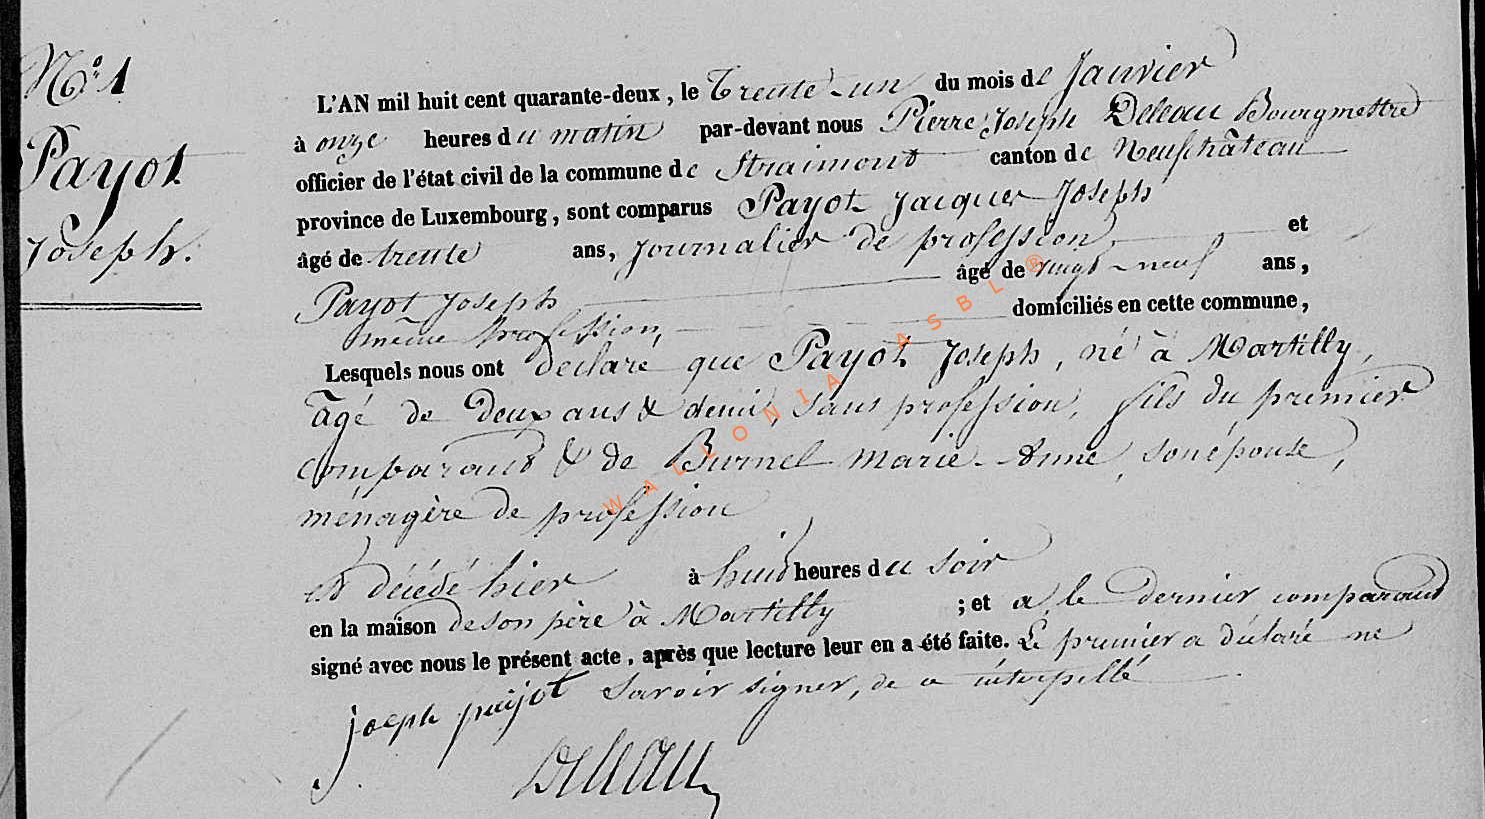 N.° 1
Payot
Joseph.
L'AN mil huit cent quarante-deux, le Trente-un du mois de Janvier
à onze heures du matin par-devant nous Pierre Joseph Deleau Bourgmettre
officier de l'état civil de la commune de Straimont canton de Neufchâteau
province de Luxembourg, sont comparus Payot Jacques Joseph
âgé de trente ans, Journalier de profession, et
Payot Joseph âgé de vingt-neuf ans,
même profession, domiciliés en cette commune,
Lesquels nous ont declaré que Payot Joseph, né à Martilly,
âgé de Deux ans & demi, sans profession, fils du premier
comparant & de Burnel marie-Anne, son épouse,
ménagère de profession
est décédé hier à huit heures du soir
en la maison de son père à Martilly ; et a le dernier comparant
signé avec nous le présent acte, après que lecture leur en a été faite. Le premier a déclaré ne
savoir signer, de ce interpellé
joseph paijot
Deleau
WALLONIA ASBL ®